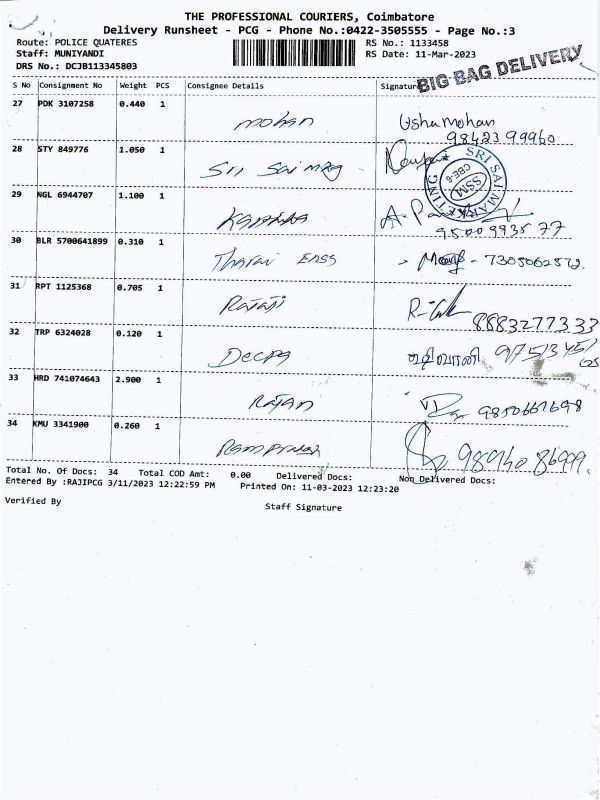 THE PROFESSIONAL COURIERS, Coimbatore
Delivery Runsheet - PCG - Phone No.:0422-3505555 - Page No.:3
Route: POLICE QUATERES
RS No.: 1133458
Staff: MUNIYANDI
RS Date: 11-Mar-2023
DRS No.: DCJB113345803
BIG BAG DELIVERY
S No Consignment No Weight PCS Consignee Details Signature
27 PDK 3107258 0.440 1
mohan Usha mohan
98423 99960
28 STY 849776 1.050 1
Sri Sai
SRI SAI MARKETING
CBE-6
SSM
29 NGL 6944707 1.100 1
A.
95009935 77
30 BLR 5700641899 0.310 1
Tharai Enss - 7305062572.
31 RPT 1125368 0.705 1
Rajaji
8883277333
32 TRP 6324028 0.120 1
Deepa
33 HRD 741074643 2.900 1
Rajan 9850661698
34 KMU 3341900 0.260 1
98940 86999.
Total No. Of Docs: 34 Total COD Amt: 0.00 Delivered Docs: Non Delivered Docs:
Entered By :RAJIPCG 3/11/2023 12:22:59 PM Printed On: 11-03-2023 12:23:20
Verified By Staff Signature